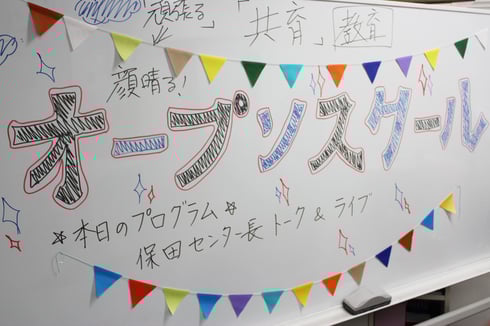 「頑張る」「共育」 教育
顔晴る!
オープンスクール
☆本日のプログラム☆
保田センター長 トーク & ライブ